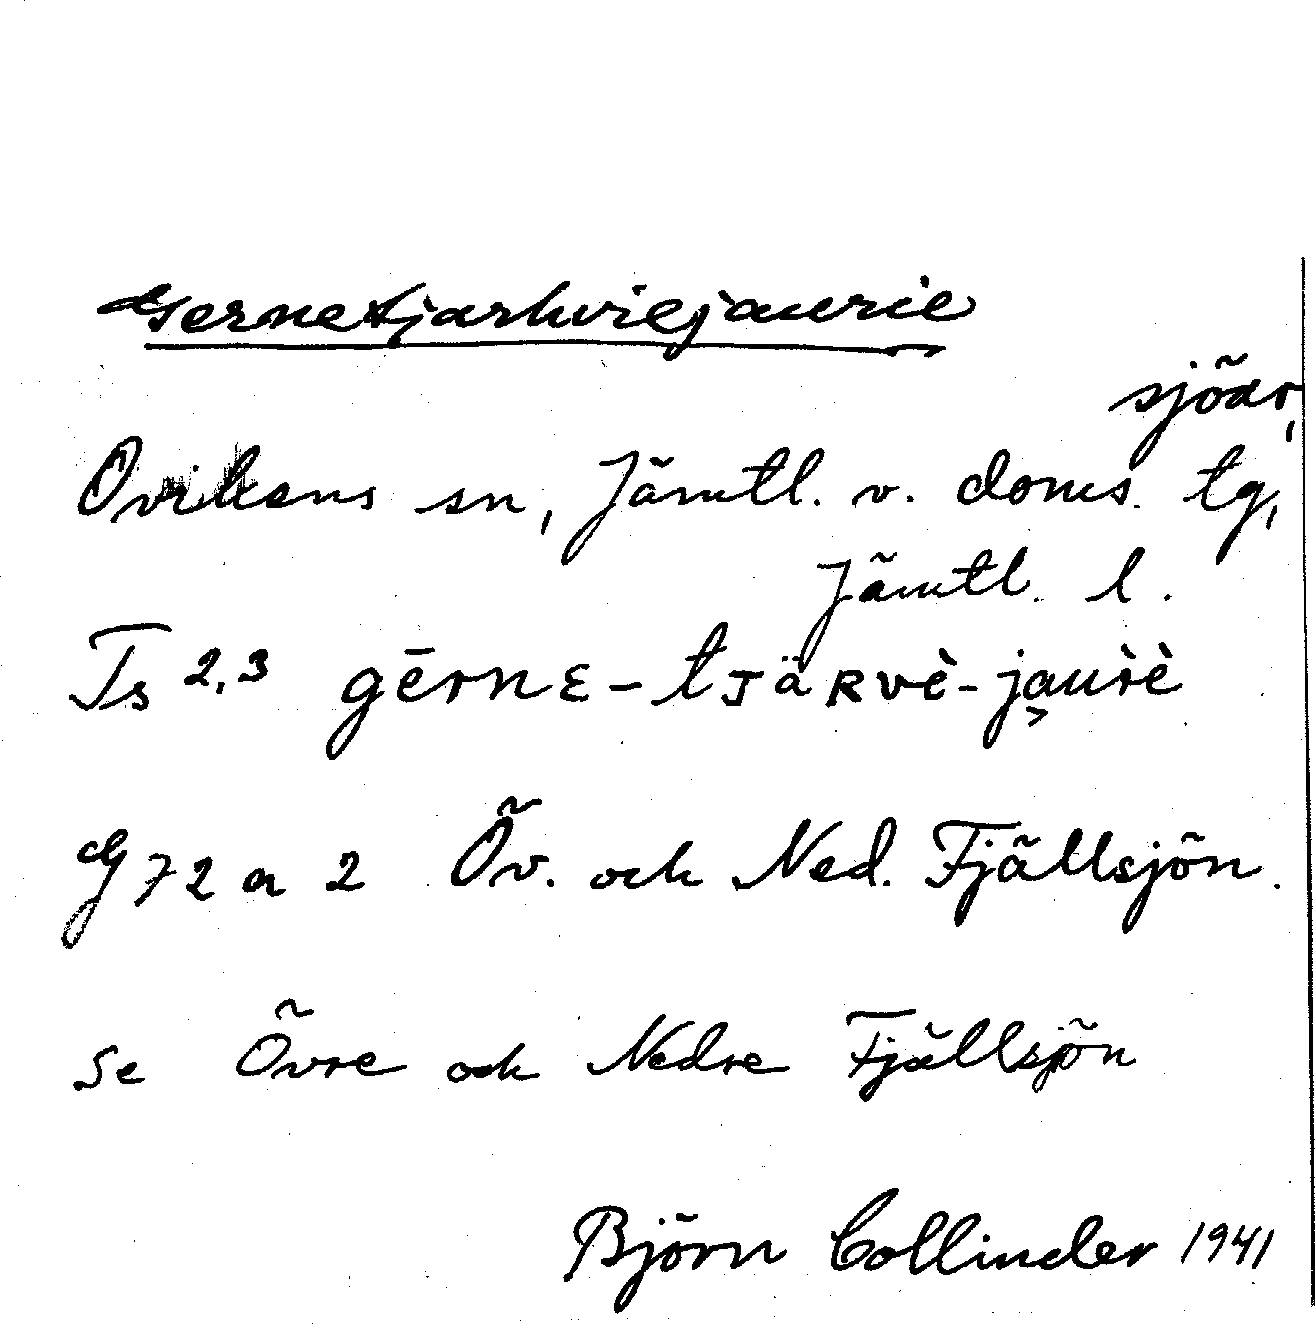 Gernetjarhviejaurie
sjöar,
Ovikens sn, Jämtl. v. doms. tg,
Jämtl. l.
Ts 2,3 gērnɛ-tᴊäʀvè-ja̬urè
G 72 a 2 Öv. och Ned. Fjällsjön.
se Övre och Nedre Fjällsjön
Björn Collinder 1941